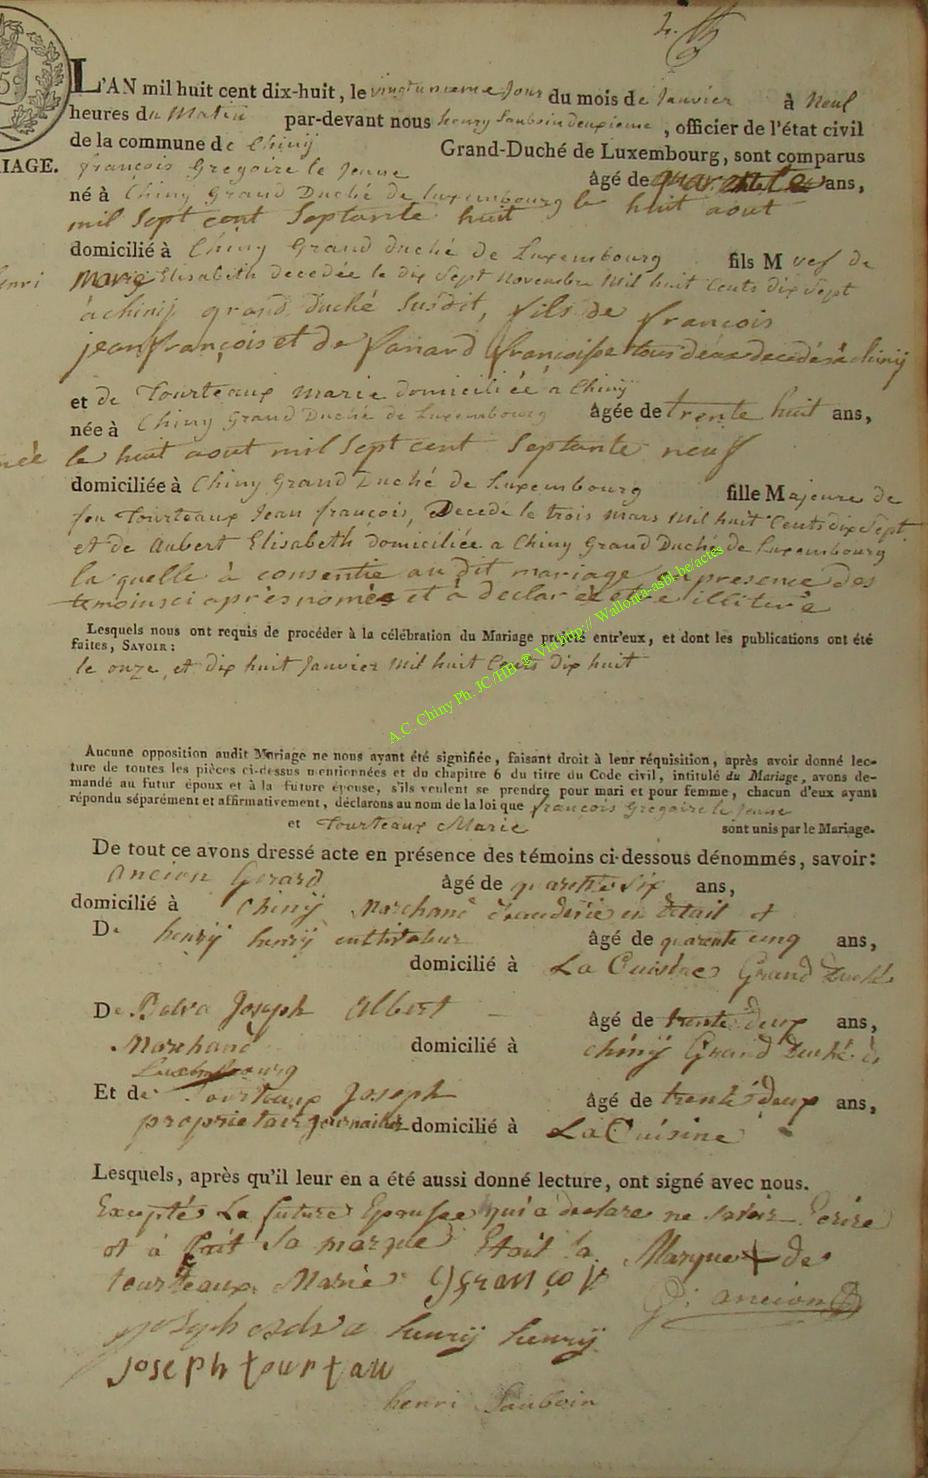 L'AN mil huit cent dix-huit, le vingtunieme jour du mois de janvier à Neuf
heures du Matin par-devant nous henry Sauboin deuxieme, officier de l'état civil
de la commune de Chiny Grand-Duché de Luxembourg, sont comparus
IAGE. françois Gregoire le Jeune âgé de quarante ans,
né à Chiny Grand Duché de Luxembourg le huit aout
mil Sept cent Septante huit
domicilié à Chiny Grand Duché de Luxembourg fils M vef de
enri Marie Elisabeth decedée le dix Sept Novembre Mil huit Cents dix Sept
à chinÿ grand Duché Susdit, fils de françois
jean françois et de fanard françoise tous deux decedés à chinÿ
et de Tourteaux Marie domiciliée à Chinÿ
née à Chiny Grand Duché de Luxembourg âgée de trente huit ans,
née le huit aout mil Sept cent Septante neuf
domiciliée à Chiny Grand Duché de Luxembourg fille Majeure de
feu Tourteaux Jean françois, Decede le trois Mars Mil huit Cents dix Sept
et de Aubert Elisabeth domiciliée a Chiny Grand Duché de Luxembourg
la quelle à consentie au dit mariage en presence des
temoins ci après només et à declar et etre illiterè
Lesquels nous ont requis de procéder à la célébration du Mariage projeté entr'eux, et dont les publications ont été
faites, SAVOIR:
le onze, et dix huit Janvier Mil huit Cents dix huit
A.C. Chiny Ph. JC/HB @ Via http:// Wallonia-asbl.be/actes
Aucune opposition audit Mariage ne nous ayant été signifiée, faisant droit à leur réquisition, après avoir donné lec-
ture de toutes les pièces ci-dessus mentionnées et du chapitre 6 du titre du Code civil, intitulé du Mariage, avons de-
mandé au futur époux et à la future épouse, s'ils veulent se prendre pour mari et pour femme, chacun d'eux ayant
répondu séparément et affirmativement, déclarons au nom de la loi que françois Gregoire le Jeune
et Tourteaux Marie sont unis par le Mariage.
De tout ce avons dressé acte en présence des témoins ci-dessous dénommés, savoir:
Ancion Gerard âgé de quarente Six ans,
domicilié à Chinÿ Marchand en detail et
De henrÿ henrÿ âgé de quarente cinq ans,
domicilié à La Cuisine Grand Duché
De Joseph Albert âgé de trente deux ans,
Marchand domicilié à chinÿ Grand Duché de
Luxembourg
Et de Tourteaux Joseph âgé de trente deux ans,
proprietair journailler domicilié à La Cuisine
Lesquels, après qu'il leur en a été aussi donné lecture, ont signé avec nous.
Excepté La future Epousee qui a declare ne Savoir Ecrire
et à fait Sa marque Etoit la Marque + de
tourteaux Marie
G: ancion
henrÿ henrÿ
joseph tourtau
henri Sauboin